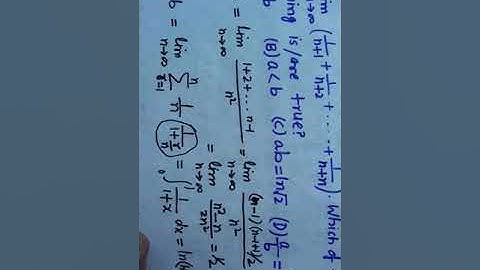 lim n→∞ (1/(n+1) + 1/(n+2) + . . . + 1/(n+n)). Which of
ing is/are true?
b (B) a < b (C) ab = ln√2 (D) a/b =
= lim n→∞ (1+2+...n-1)/n² = lim n→∞ ((n-1)(n-1+1)/2)/n²
= lim n→∞ (n²-n)/2n² = 1/2
b = lim n→∞ Σ r=1 n 1/n 1/(1+r/n) = ∫0 1/(1+x) dx = ln(